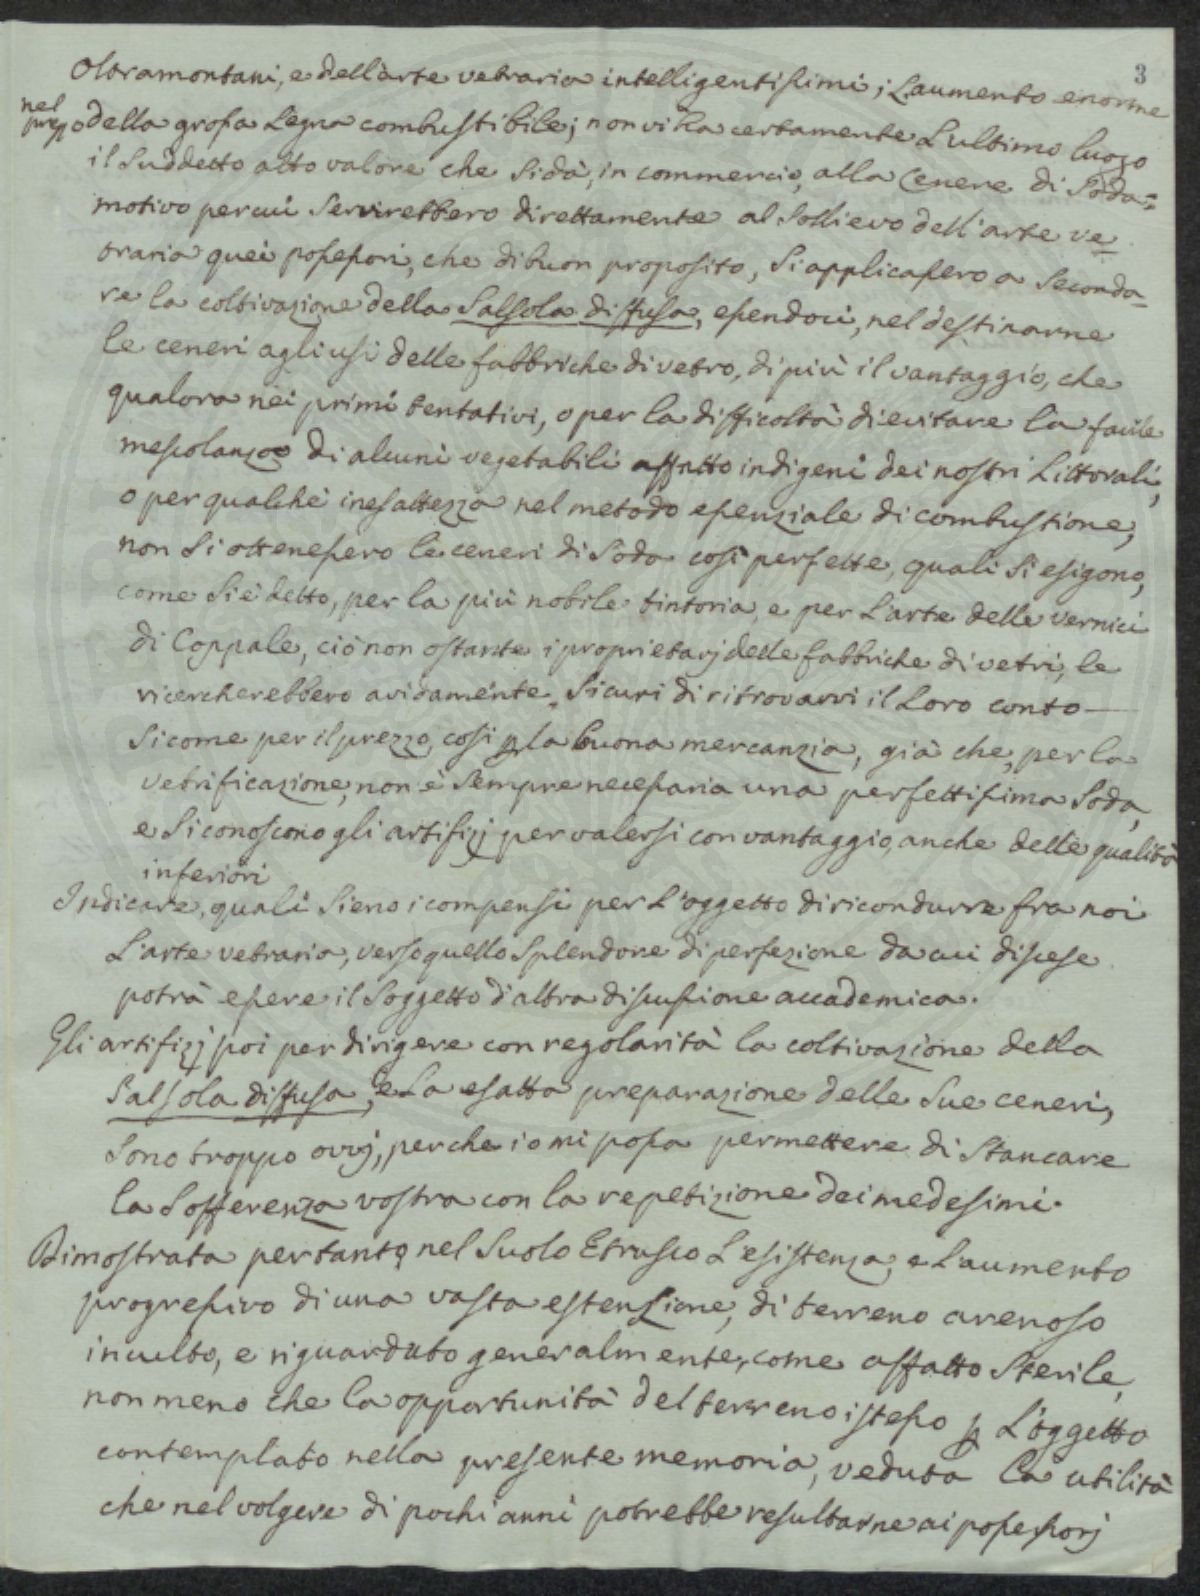 3
Oltramontani, e dell'arte vetraria intelligentissimi; L'aumento enorme
nel prezzo della grossa Legna combustibile; non vi ha certamente L'ultimo luogo
il suddetto alto valore che si dà, in commercio, alla Cenere di Soda:
motivo per cui servirebbero direttamente al sollievo dell'arte ve=
traria quei possessori, che di buon proposito, si applicassero a seconda=
re la coltivazione della Salsola diffusa, essendoci, nel destinarne
le ceneri agli usi delle fabbriche di vetro, di più il vantaggio, che
qualora nei primi tentativi, o per la difficoltà di evitare la facile
mescolanza di alcuni vegetabili affatto indigeni dei nostri Littorali,
o per qualche inesattezza nel metodo essenziale di combustione,
non si ottenessero le ceneri di Soda così perfette, quali si esigono,
come si è detto, per la più nobile tintoria, e per L'arte delle vernici
di Coppale, ciò non ostante i proprietarj delle fabbriche di vetri, le
ricercherebbero avidamente, sicuri di ritrovarvi il Loro conto —
Sicome per il prezzo, così p la buona mercanzia, già che, per la
vetrificazione, non è sempre necessaria una perfettissima Soda,
e si conoscono gli artifizj per valersi con vantaggio, anche delle qualità
inferiori
Indicare, quali sieno i compensi per L'oggetto di ricondurre fra noi
L'arte vetraria, verso quello splendore di perfezione da cui discese
potrà essere il soggetto d'altra discussione accademica.
Gli artifizj poi per dirigere con regolarità la coltivazione della
Salsola diffusa, e La esatta preparazione delle sue ceneri,
sono troppo ovvj, perche io mi possa permettere di stancare
la sofferenza vostra con la repetizione dei medesimi.
Dimostrata pertanto, nel suolo Etrusco L'esistenza, e L'aumento
progressivo di una vasta estensione, di terreno arenoso
inculto, e riguardato generalmente, come affatto sterile,
non meno che la opportunità del terreno istesso p L'oggetto
contemplato nella presente memoria, veduta la utilità
che nel volgere di pochi anni potrebbe resultarne ai possessorj